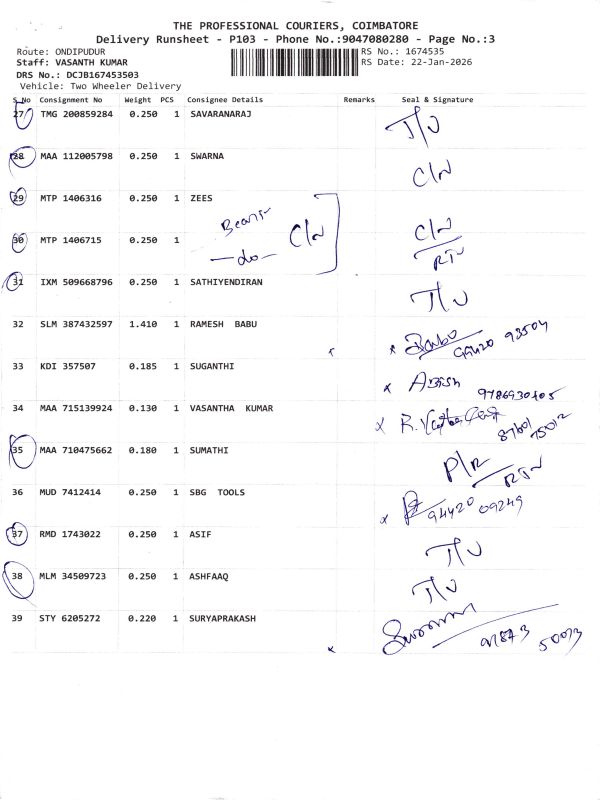 THE PROFESSIONAL COURIERS, COIMBATORE
Delivery Runsheet - P103 - Phone No.:9047080280 - Page No.:3
Route: ONDIPUDUR
RS No.: 1674535
Staff: VASANTH KUMAR
RS Date: 22-Jan-2026
DRS No.: DCJB167453503
Vehicle: Two Wheeler Delivery
S.No Consignment No Weight PCS Consignee Details Remarks Seal & Signature
27 TMG 200859284 0.250 1 SAVARANARAJ T/U
28 MAA 112005798 0.250 1 SWARNA C/N
29 MTP 1406316 0.250 1 ZEES C/N C/N
30 MTP 1406715 0.250 1 —do— RTN
31 IXM 509668796 0.250 1 SATHIYENDIRAN T/U
32 SLM 387432597 1.410 1 RAMESH BABU x Babu 94420 93504
33 KDI 357507 0.185 1 SUGANTHI x
34 MAA 715139924 0.130 1 VASANTHA KUMAR x
35 MAA 710475662 0.180 1 SUMATHI P/R RTN
36 MUD 7412414 0.250 1 SBG TOOLS x 94420 09249
37 RMD 1743022 0.250 1 ASIF T/U
38 MLM 34509723 0.250 1 ASHFAAQ T/U
39 STY 6205272 0.220 1 SURYAPRAKASH x